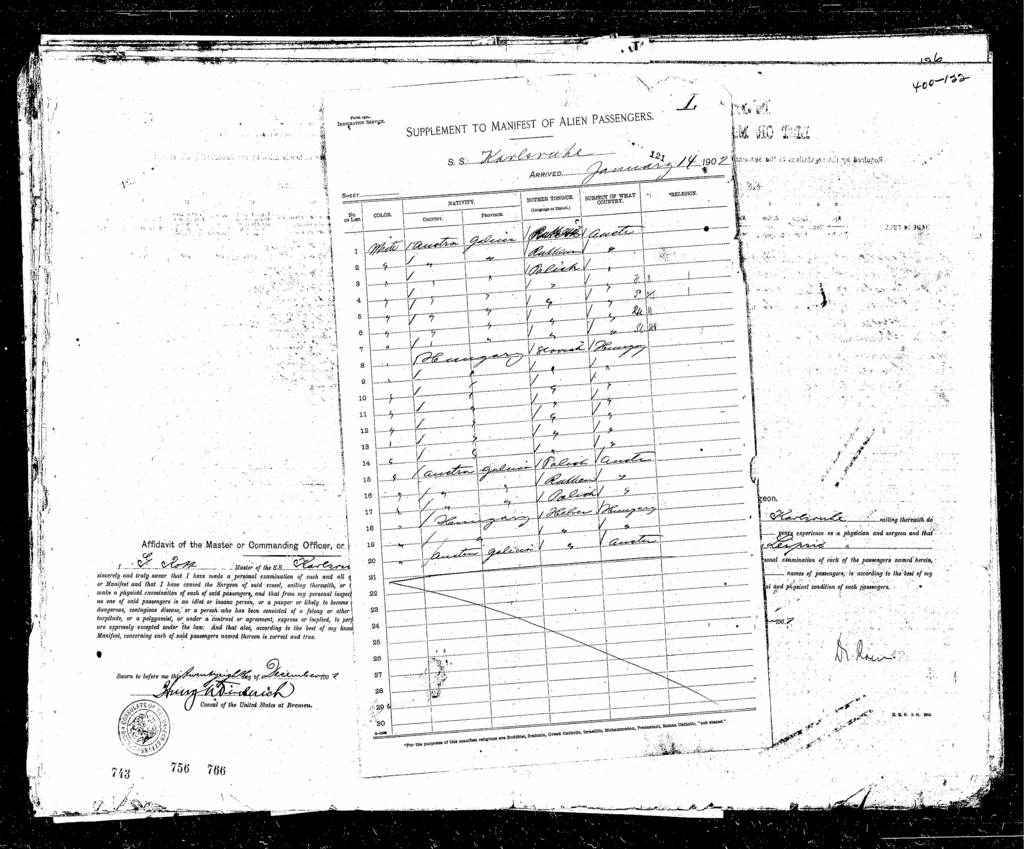 126
400-132
Form 1500.
IMMIGRATION SERVICE.
L
SUPPLEMENT TO MANIFEST OF ALIEN PASSENGERS.
S. S. Karlsruhe
121
ARRIVED, January 14 1902
SHEET
No. on List. COLOR. NATIVITY. MOTHER TONGUE. (Language or Dialect.) SUBJECT OF WHAT COUNTRY. *RELIGION.
COUNTRY. PROVINCE.
1 White Austria Galicia Austr
2 " " " Ruthen "
3 " " " Polish
4 " " " " "
5 " " " " "
6 " " " " "
7 " " " " "
8 " Hungary Slovak Hungary
9 " " " "
10 " " " "
11 " " " "
12 " " " "
13 " " " "
14 " " " "
15 " Austria Galicia Polish Austr
16 " " " Ruthen "
17 " " " Polish "
18 " Hungary Hebre Hungary
19 " " " "
20 " Austria Galicia " Austr
21
22
23
24
25
26
27
28
29
30
*For the purposes of this manifest religions are Buddhist, Brahmin, Greek Catholic, Israelite, Mohammedan, Protestant, Roman Catholic, "not stated."
Affidavit of the Master or Commanding Officer, or
I, G Rott Master of the S.S. Karlsru
sincerely and truly swear that I have made a personal examination of each and all
or Manifest and that I have caused the Surgeon of said vessel, sailing therewith, or
make a physical examination of each of said passengers, and that from my personal inspect
no one of said passengers is an idiot or insane person, or a pauper or likely to become
dangerous, contagious disease, or a person who has been convicted of a felony or other
turpitude, or a polygamist, or under a contract or agreement, express or implied, to per
are expressly excepted under the law. And that also, according to the best of my know
Manifest, concerning each of said passengers named therein is correct and true.
Sworn to before me this twentyeighth day of December 190
Consul of the United States at Bremen.
743 756 766
geon.
Karlsruhe sailing therewith do
years experience as a physician and surgeon and that
Leipzig
sonal examination of each of the passengers named herein,
names of passengers, is according to the best of my
al and physical condition of such passengers.